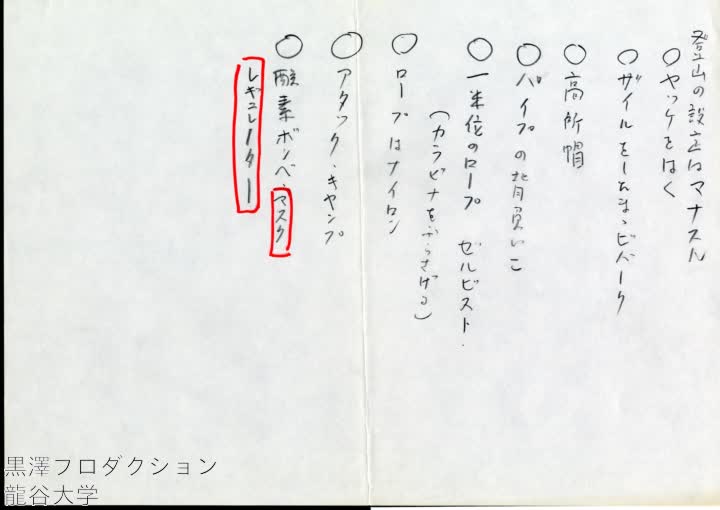 登山の設定はマナスル
○ヤッケをはく
○ザイルをしたまゝビバーク
○高所帽
○パイプの背負いこ
○一米位のロープ ゼルビスト.
(カラビナをぶらさげる)
○ロープはナイロン
○アタック・キャンプ
○酸素ボンベ・マスク
レギュレーター
黒澤プロダクション
龍谷大学